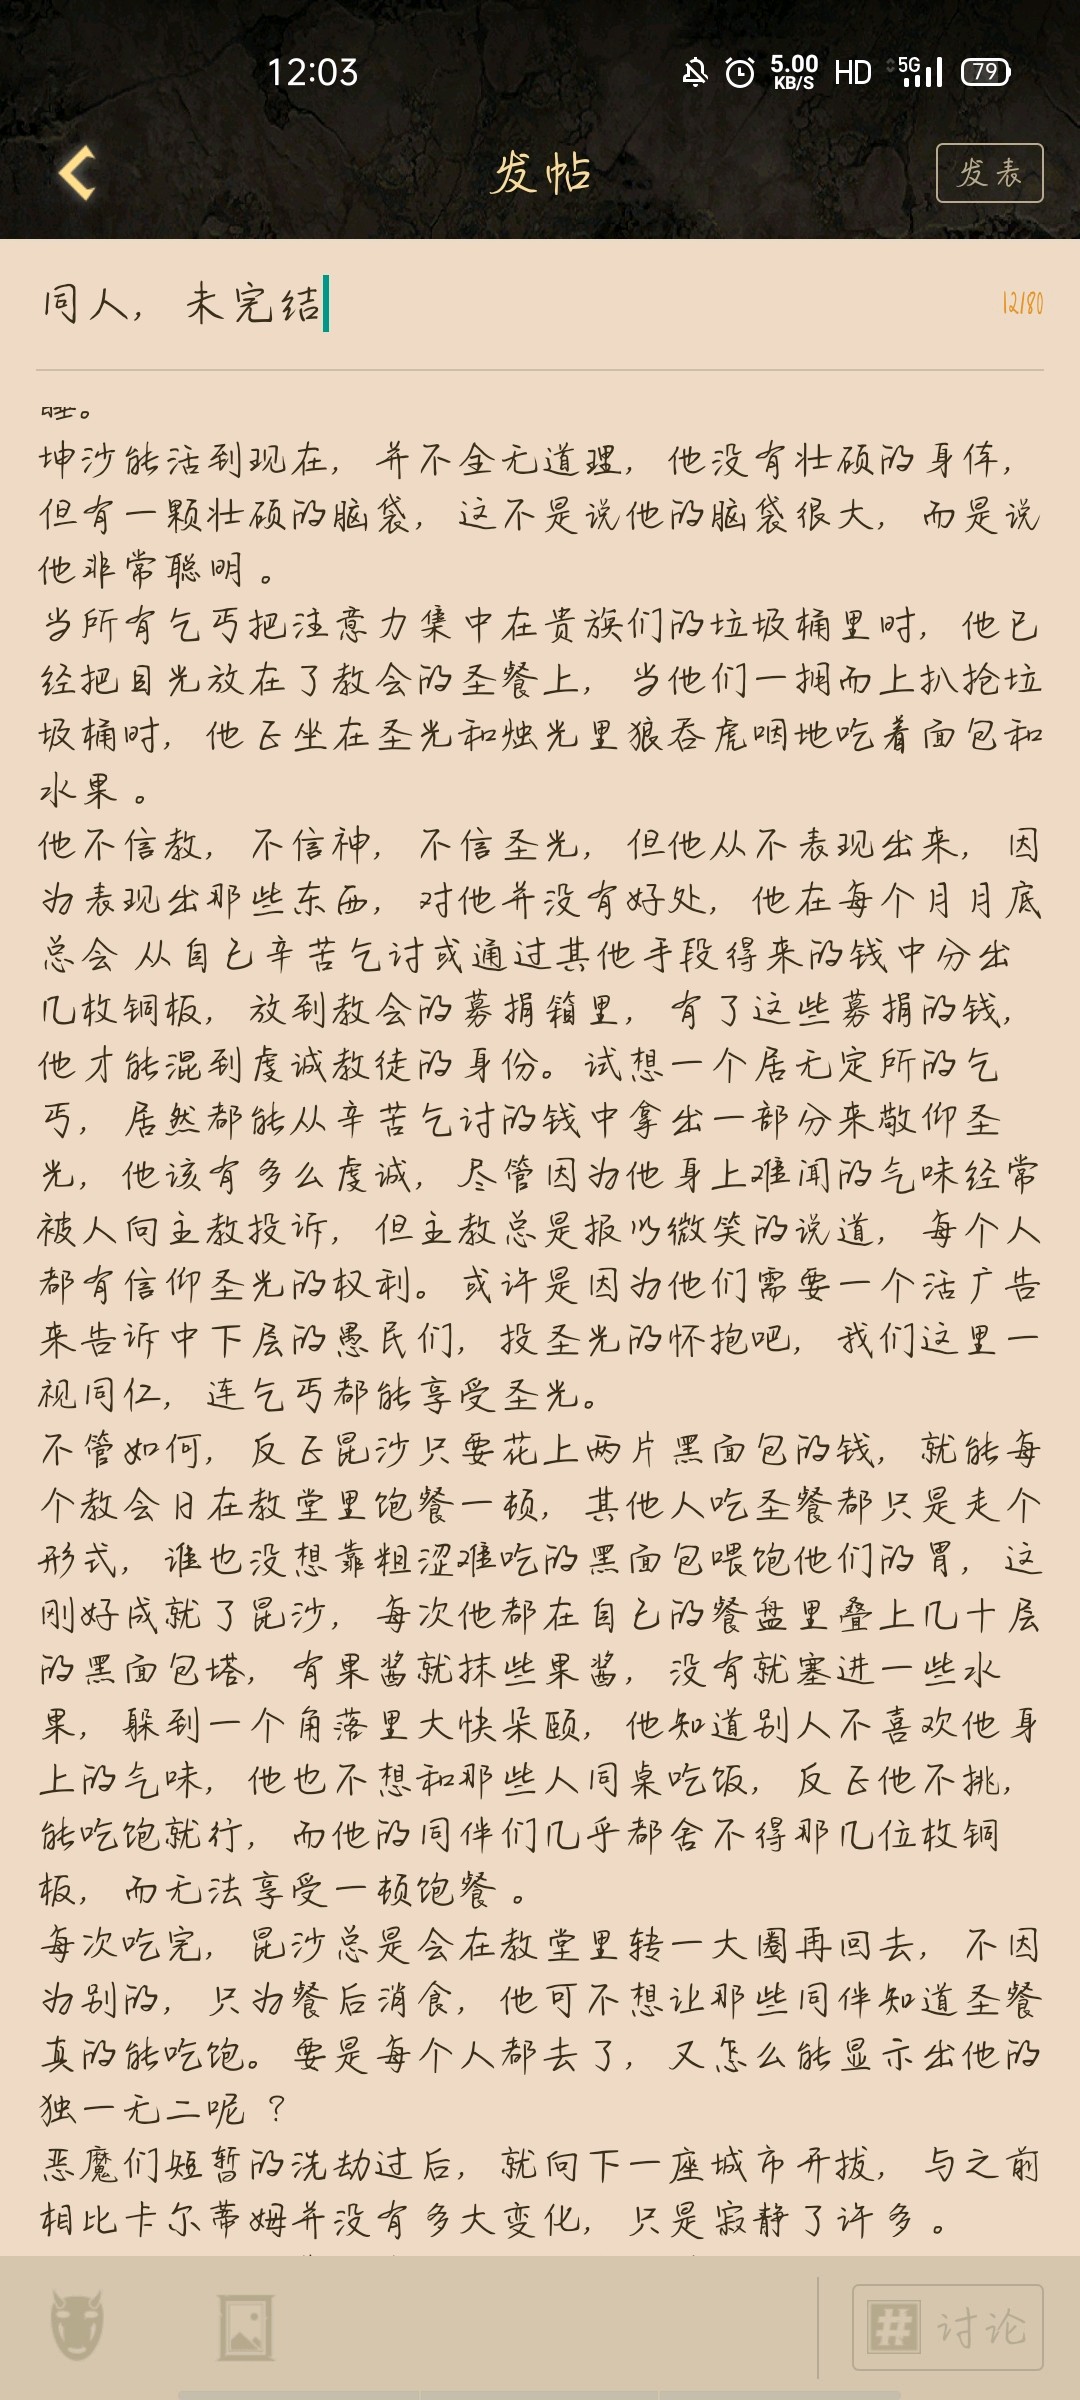 12:03
5.00
KB/S
HD
5G
79
发帖
发表
同人, 未完结
12/80
睡。
坤沙能活到现在, 并不全无道理, 他没有壮硕的身体,
但有一颗壮硕的脑袋, 这不是说他的脑袋很大, 而是说
他非常聪明。
当所有乞丐把注意力集中在贵族们的垃圾桶里时, 他已
经把目光放在了教会的圣餐上, 当他们一拥而上扒抢垃
圾桶时, 他正坐在圣光和烛光里狼吞虎咽地吃着面包和
水果。
他不信教, 不信神, 不信圣光, 但他从不表现出来, 因
为表现出那些东西, 对他并没有好处, 他在每个月月底
总会 从自己辛苦乞讨或通过其他手段得来的钱中分出
几枚铜板, 放到教会的募捐箱里, 有了这些募捐的钱,
他才能混到虔诚教徒的身份。试想一个居无定所的乞
丐, 居然都能从辛苦乞讨的钱中拿出一部分来敬仰圣
光, 他该有多么虔诚, 尽管因为他身上难闻的气味经常
被人向主教投诉, 但主教总是报以微笑的说道, 每个人
都有信仰圣光的权利。或许是因为他们需要一个活广告
来告诉中下层的愚民们, 投圣光的怀抱吧, 我们这里一
视同仁, 连乞丐都能享受圣光。
不管如何, 反正昆沙只要花上两片黑面包的钱, 就能每
个教会日在教堂里饱餐一顿, 其他人吃圣餐都只是走个
形式, 谁也没想靠粗涩难吃的黑面包喂饱他们的胃, 这
刚好成就了昆沙, 每次他都在自己的餐盘里叠上几十层
的黑面包塔, 有果酱就抹些果酱, 没有就塞进一些水
果, 躲到一个角落里大快朵颐, 他知道别人不喜欢他身
上的气味, 他也不想和那些人同桌吃饭, 反正他不挑,
能吃饱就行, 而他的同伴们几乎都舍不得那几位枚铜
板, 而无法享受一顿饱餐。
每次吃完, 昆沙总是会在教堂里转一大圈再回去, 不因
为别的, 只为餐后消食, 他可不想让那些同伴知道圣餐
真的能吃饱。要是每个人都去了, 又怎么能显示出他的
独一无二呢 ?
恶魔们短暂的洗劫过后, 就向下一座城市开拔, 与之前
相比卡尔蒂姆并没有多大变化, 只是寂静了许多。
讨论